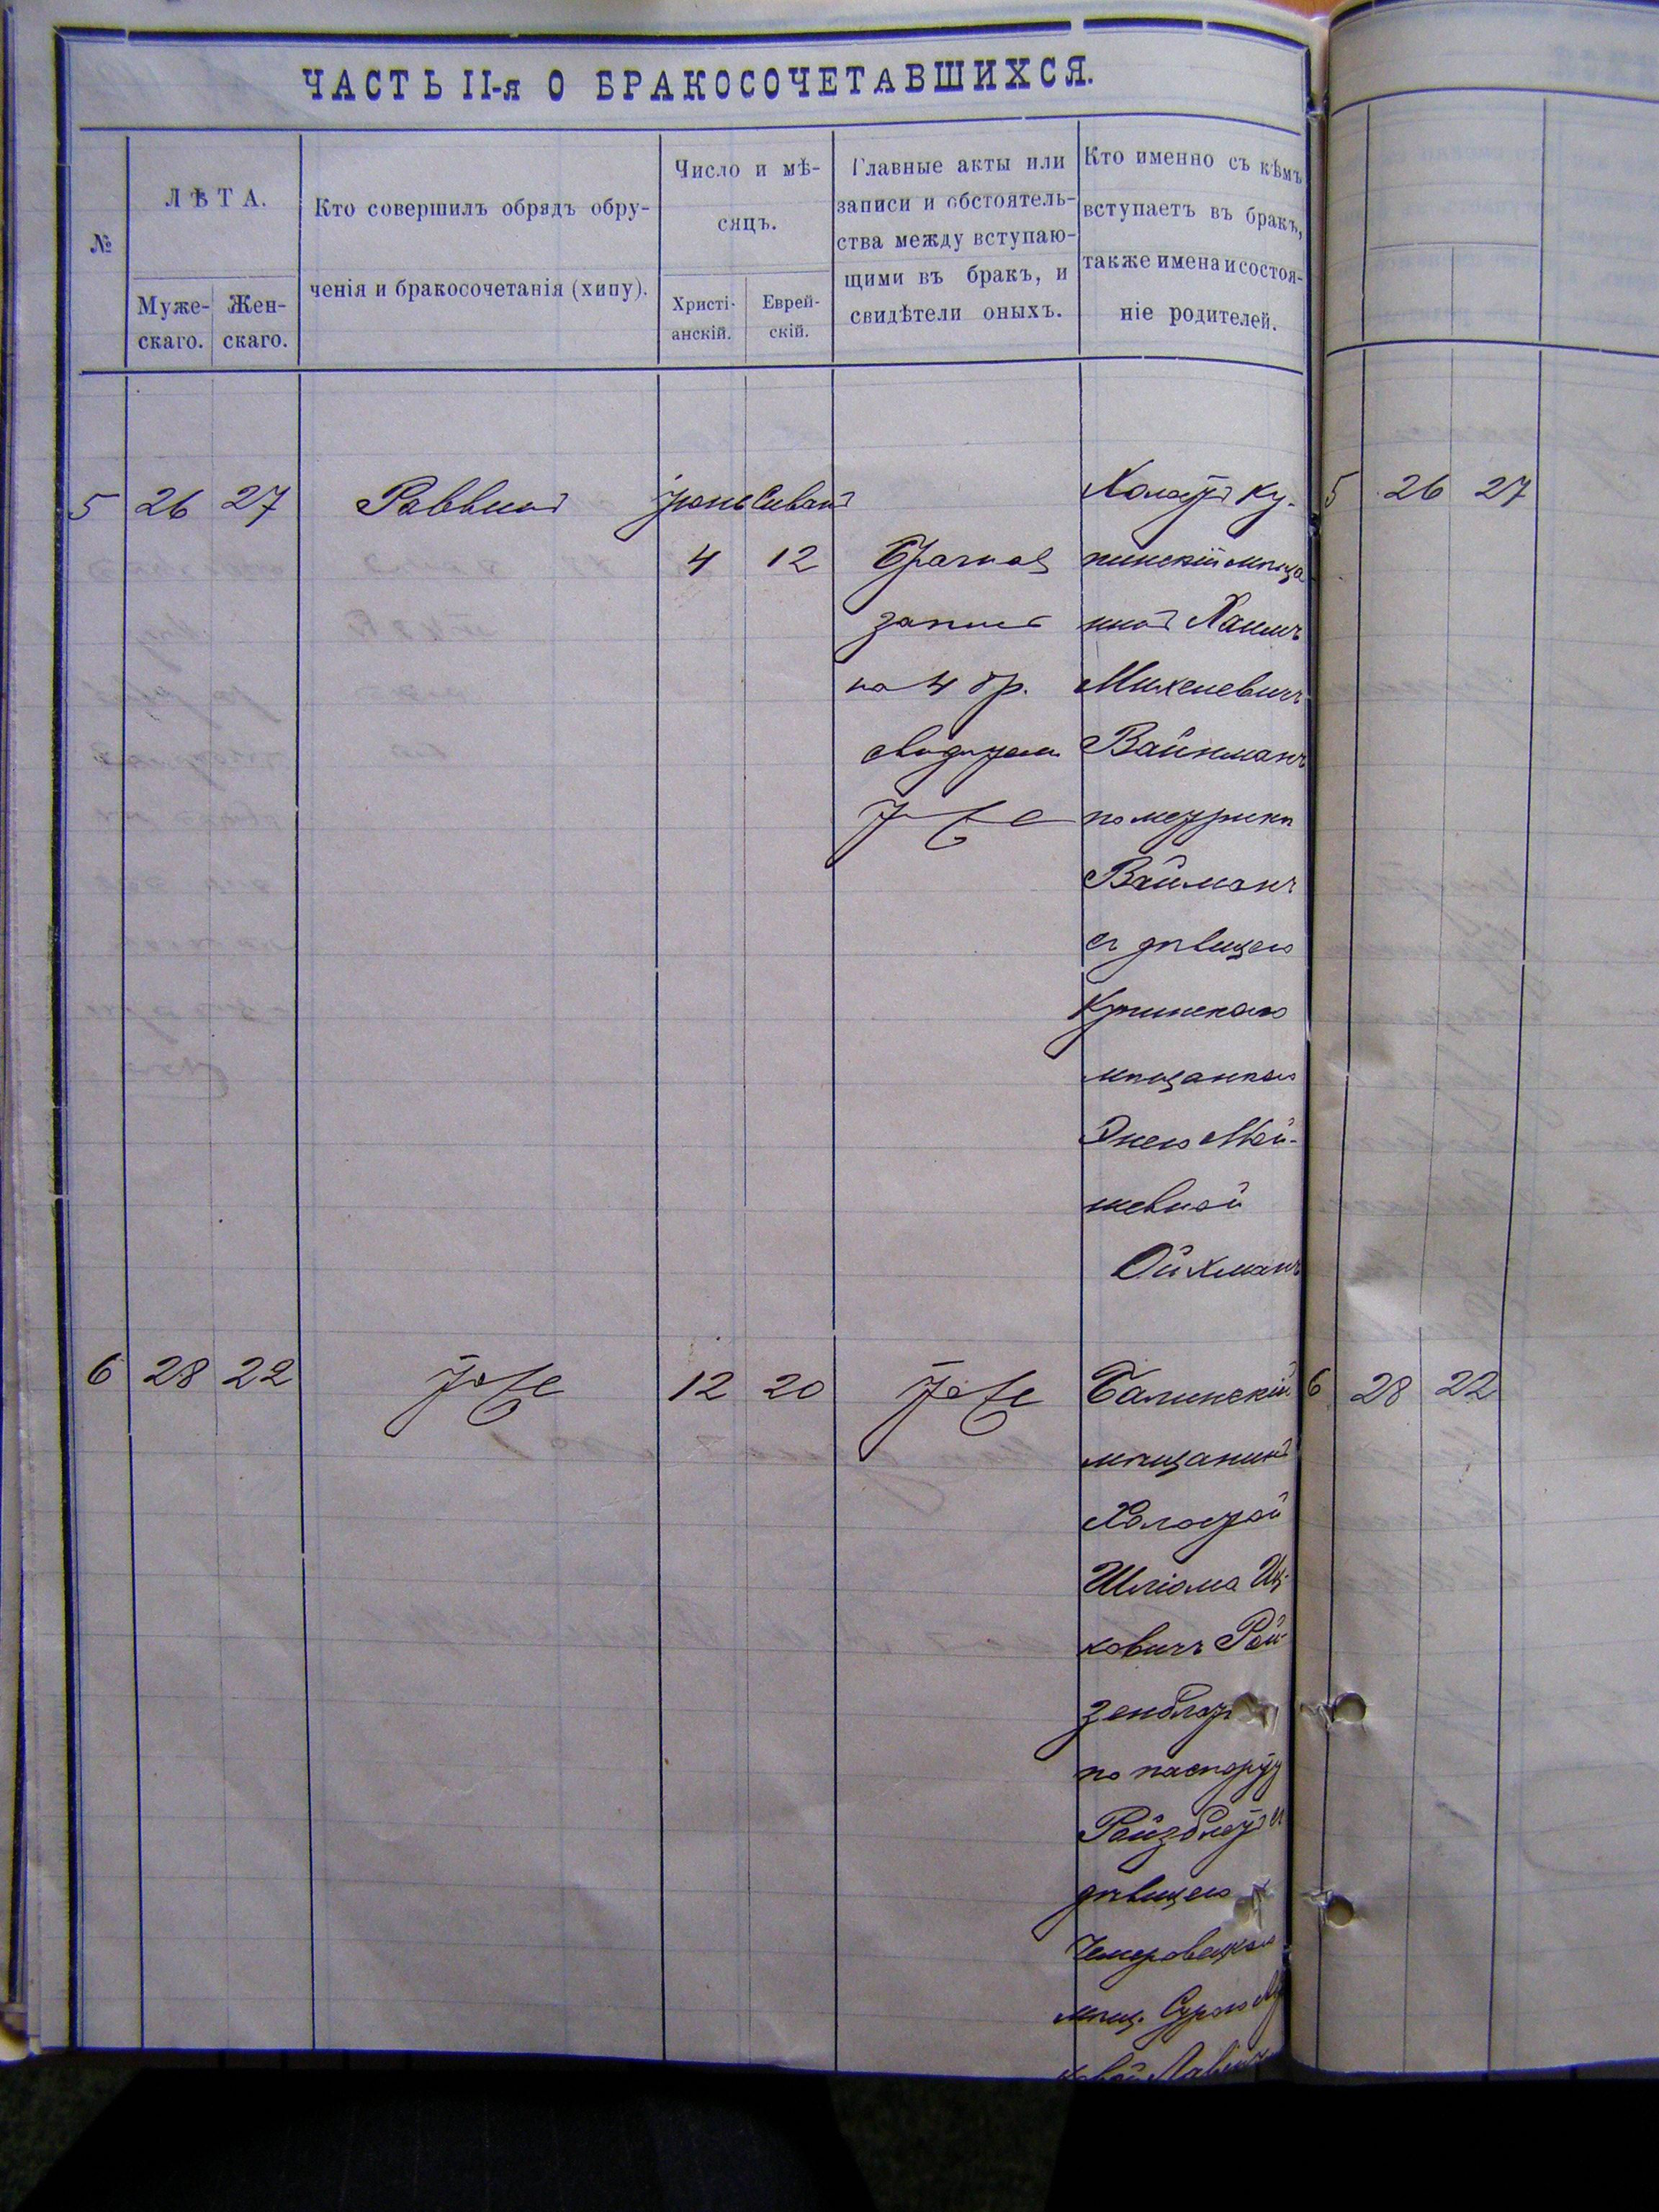 ЧАСТЬ II-я О БРАКОСОЧЕТАВШИХСЯ.
№
ЛѢТА.
Муже-
скаго.
Жен-
скаго.
Кто совершилъ обрядъ обру-
ченія и бракосочетанія (хипу).
Число и мѣ-
сяцъ.
Христі-
анскій.
Еврей-
скій.
Главные акты или
записи и обстоятель-
ства между вступаю-
щими въ бракъ, и
свидѣтели оныхъ.
Кто именно съ кѣмъ
вступаетъ въ бракъ,
также имена и состоя-
ніе родителей.
5 26 27 Раввинъ Іюнь Сиванъ
4 12
Брачная
запись
на 48 р.
свидѣтели
Тоже
Холостъ Ку-
пинскій мѣща
нинъ Хаимъ
Михелевичъ
Вайнманъ
по метрикѣ
Вайманъ
съ дѣвицею
Купинскою
мѣщанкою
Энею Мой-
шевной
Ойхманъ
6 28 22 Тоже 12 20 Тоже
Балинскій
мѣщанинъ
Холостой
Шліома Иц-
ковичъ Рой-
зенблатъ
по паспорту
Ройзблатъ съ
дѣвицею
Чемеровецкою
мѣщ. Сурою
5 26 27
6 28 22